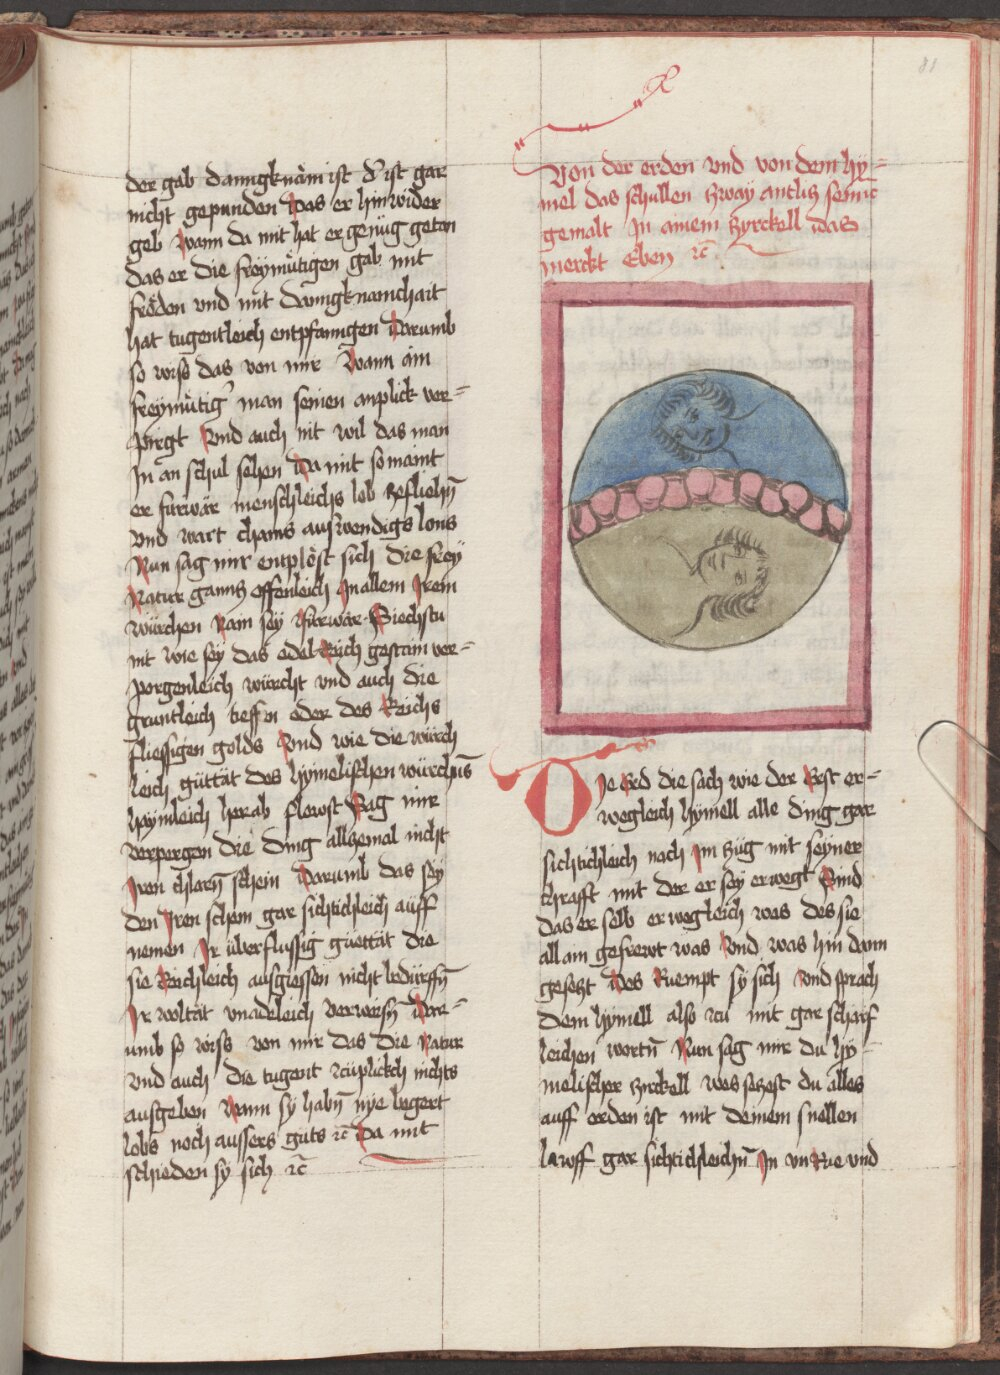 81
der gab danngknäm ist Der ist gar
nicht gepunden Das er hin wider
geb Wann da mit hat er genüg getan
das er die freymütigen gab mit
fröden vnd mit danngknamchait
hat tugentleich entpfanngen Darumb
so wiss das von mir Wann ain
freymütig man seinen anplick ver=
pirgt Vnd auch nit wil das man
In an schul sehen Da mit so maint
er fürwär menschleichs lob
vnd wart chains auswendigs lons
Nun sag mir entplöst sich die frey
Natur gannz offenleich In allem Irem
würchen Nain sey fürwär Siechstu
nit wie sey das edel Reich gestain ver=
porgenleich würcht vnd auch die
gruntleich tieff in oder des Reichs
fliessigen golds Vnd wie die würch
leich güttät des hymelischen würchūs
haymleich her ab flewst Sag mir
verpergen die ding allzemal nicht
Iren chlarn̄ schein Darumb das sey
den Iren schein gar sichtichleich auff
nemen Ir überflussig güettät die
sie Reichleich ausgiessen nicht bedürffn̄
Ir woltät vnadeleich verweisn̄ Dar=
umb so wiss von mir das die Natur
vnd auch die tugent nichts
ausgeben Wann sy habn̄ nye begert
lobs noch aussers guts ꝛc̄ Da mit
schieden sy sich ꝛc̄
Von der erden vnd von dem hy=
mel das schullen zway antliz sein
gemalt In ainem zyrckell das
merckt Eben ꝛc̄
Die Erd die sach wie der Vest er=
wegleich hymell alle ding gar
sichtichleich nach Im züg mit seyner
chrafft mit der er sey erwegt Vnd
das er selb erwegleich was des sie
allain gefrewt was Vnd was hin dann
gesetzt Des Ruempt sy sich Vnd sprach
dem hymell also zu mit gar scharf
leichen wortn̄ Nun sag mir du hy=
melischer zirckell was sehest du alles
auff erden ist mit deinem snellen
lawff gar sichtichleichn̄ In vn Rue vnd